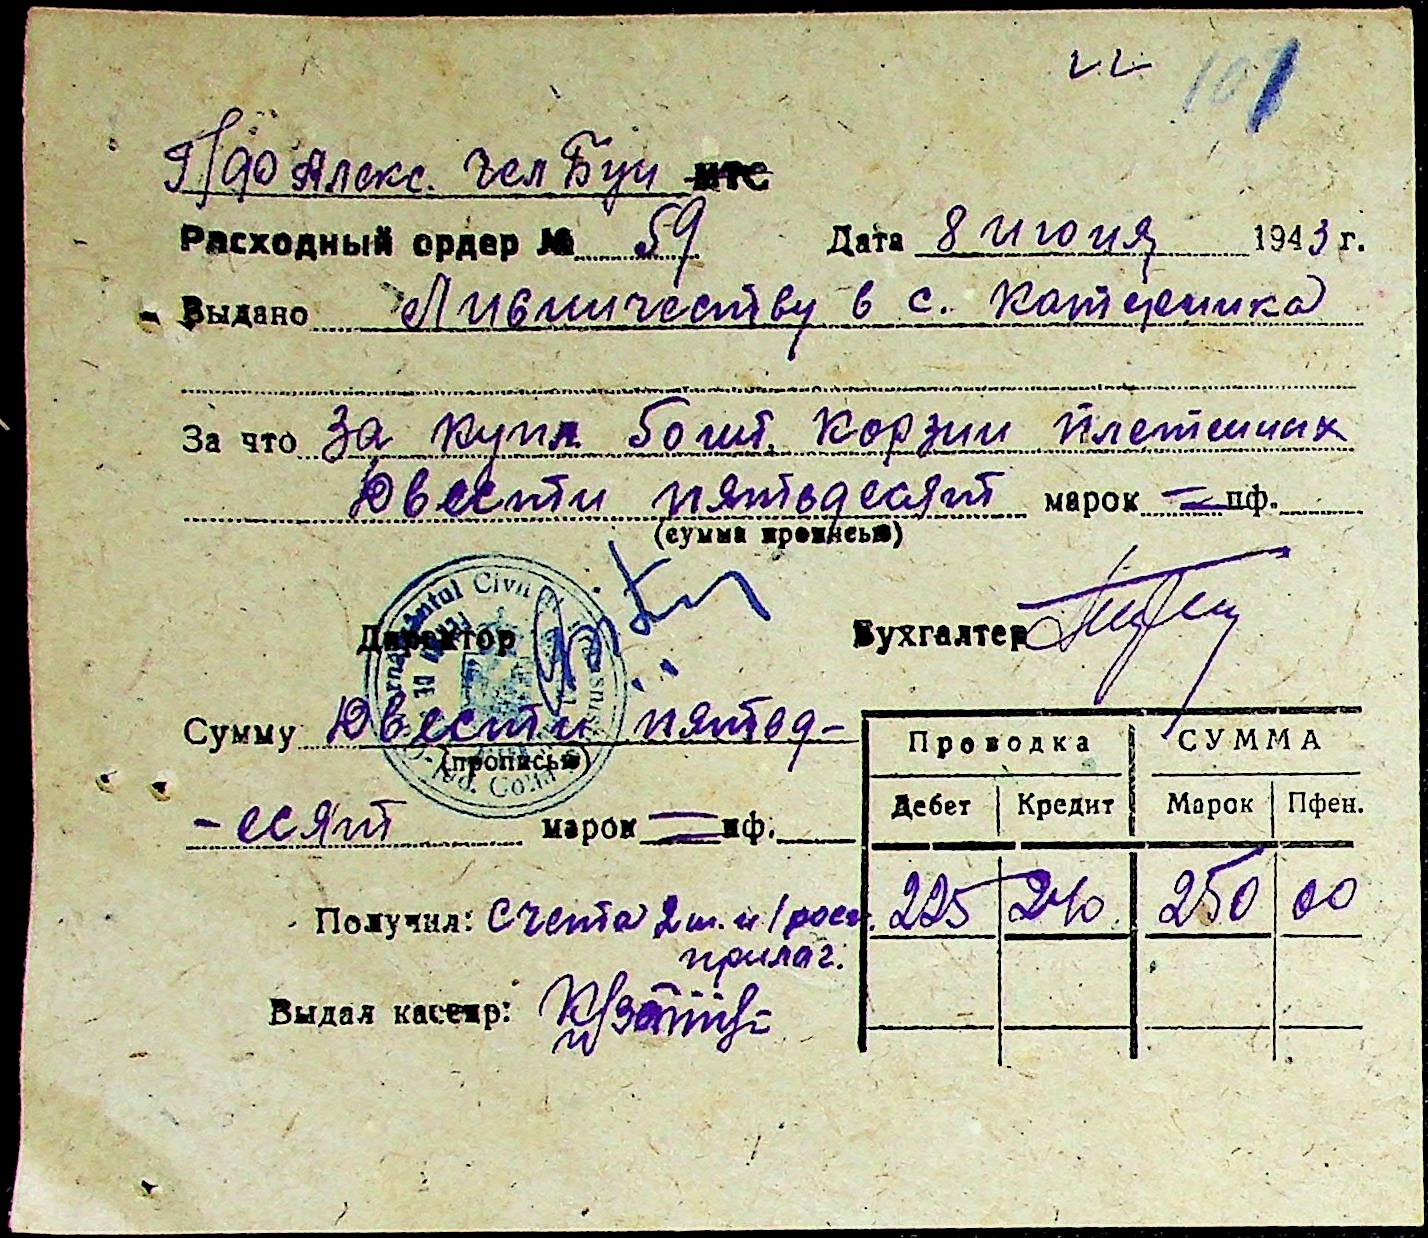 108
Алекс. Чел Буи МТС
Расходный ордер № 59 Дата 8 июня 1943 г.
Выдано в с. Катеринка
За что За купл. 50 шт. корзин плетеных
Двести пятьдесят марок = пф.
(сумма прописью)
Civil
Директор Бухгалтер
Сумму Двести пятьд-
(прописью)
-есят марок = пф.
Проводка СУММА
Дебет Кредит Марок Пфен.
225 240 250 00
Получил: Счета 2 ш. и 1 росп.
прилаг.
Выдал кассир: